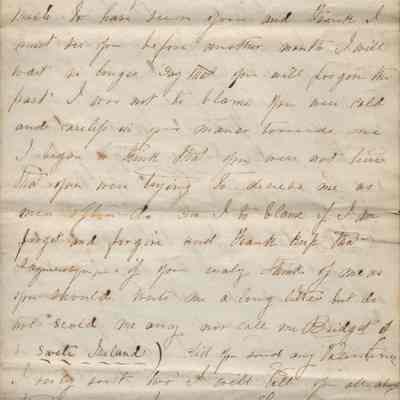 to have seen you and Frank I
must see you before another month I will
wait no longer Say that you will forgive the
past I was not to blame you were cold
and careless in your manner towards me
I began to think that you were not
that you were trying to deceive me as
men often do am I to blame if I do
forget and forgive and Frank keep that
of you only think of me as
you should write me a long letter but do
not scold me any nor call me Bridget
Swete Ireland) Did you send any Valentines
I will tell you all about